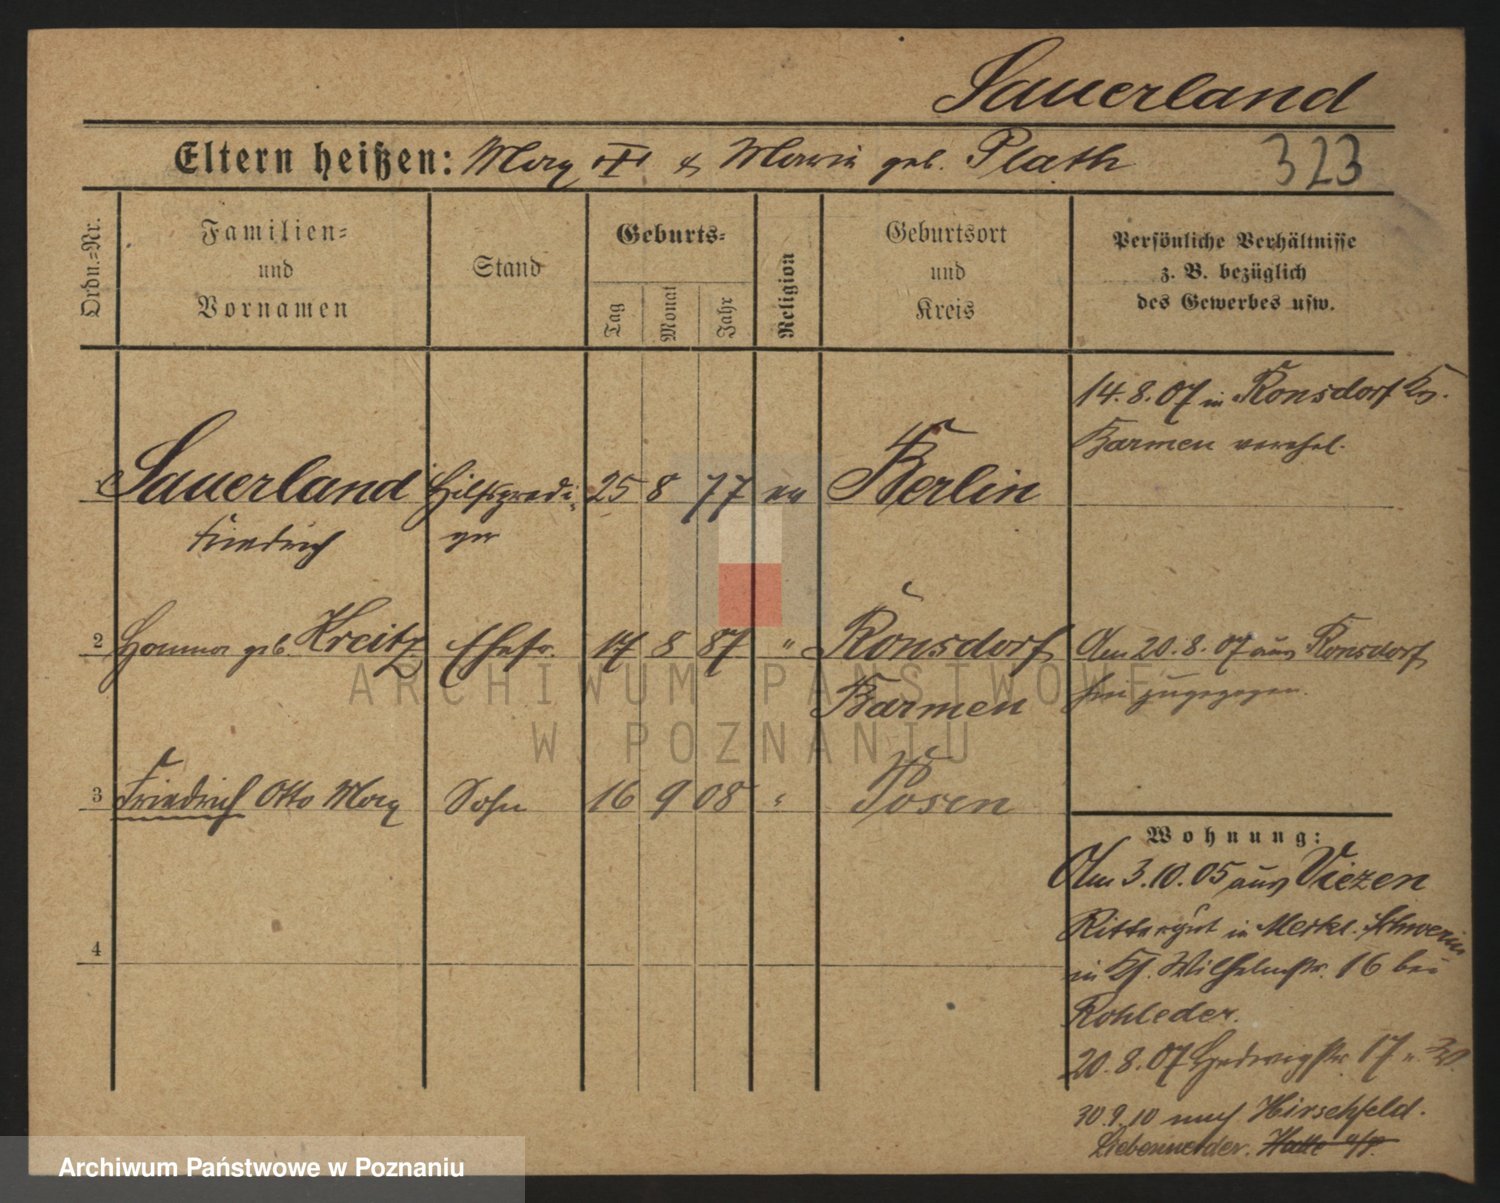 Sauerland
Eltern heißen: Max & Maria geb. Plath
323
Ordn.-Nr.
Familien-
und
Vornamen
Stand
Geburts-
Tag
Monat
Jahr
Religion
Geburtsort
und
Kreis
Persönliche Verhältnisse
z. B. bezüglich
des Gewerbes usw.
14.8.07 in Ronsdorf Kr.
Barmen verehel.
Sauerland Hilfspredi- 25 8 77 ev Berlin
Friedrich ger
2 geb. Kreitz Ehefr. 17 8 87 " Ronsdorf
Barmen
Am 20.8.07 aus Ronsdorf
hier zugezogen.
3 Friedrich Otto Max Sohn 16 9 08 " Posen
4
Wohnung:
Am 3.10.05 aus Viezen
Rittergut in Meckl. Schwerin
in Wilhelmstr. 16 bei
Rohleder.
20.8.07 Hedwigstr. 17
30.9.10 nach Hirschfeld.
Liebenwerda. Halle a/S.
ARCHIWUM PAŃSTWOWE
W POZNANIU
Archiwum Państwowe w Poznaniu